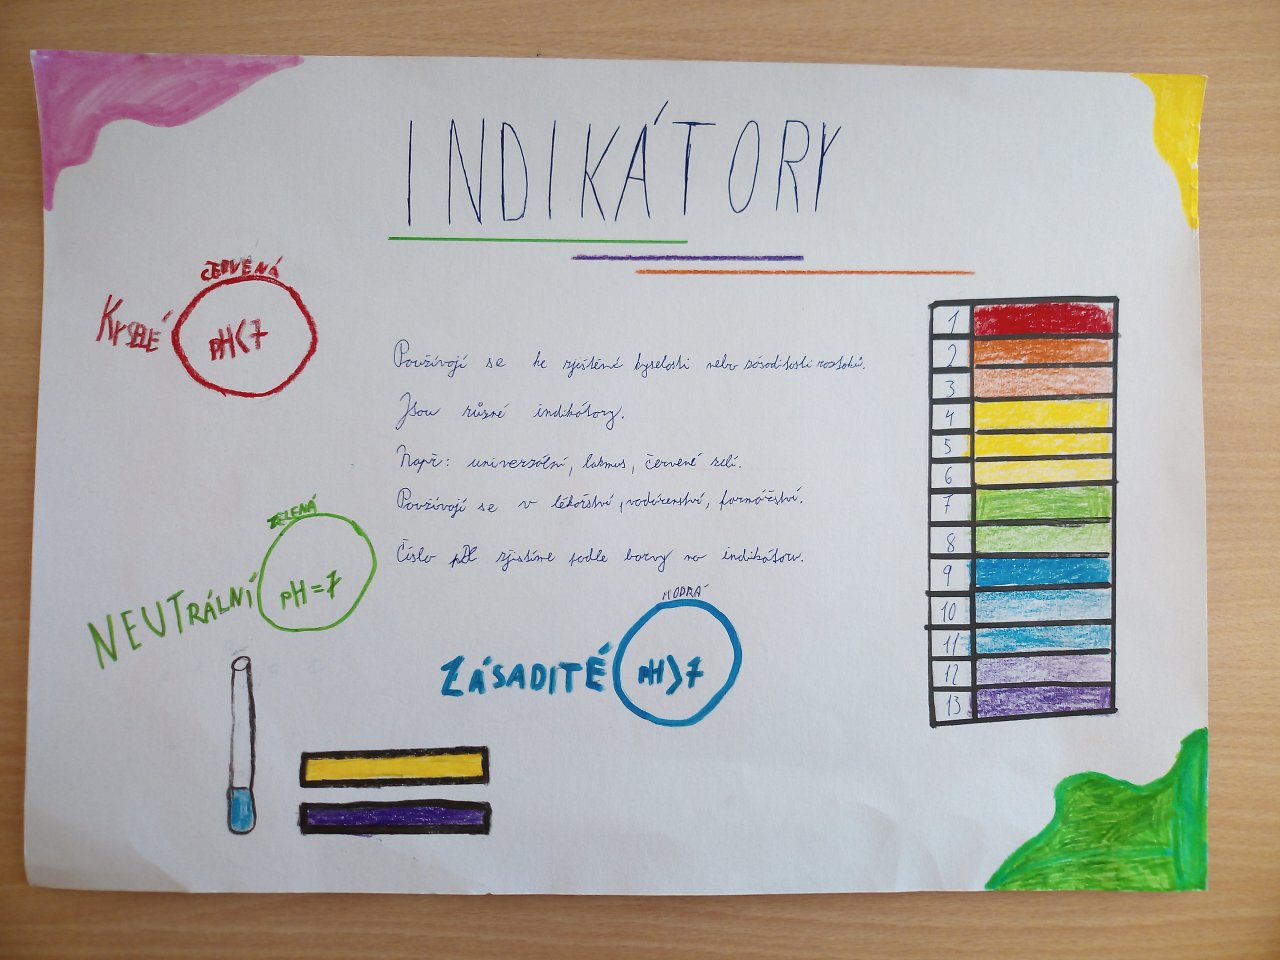 INDIKÁTORY
ČERVENÁ
KYSELÉ
pH<7
Používají se ke zjištění kyselosti nebo zásaditosti roztoků.
Jsou různé indikátory.
Např: univerzální, lakmus, červené zelí.
Používají se v lékařství, vodárenství, farmářství.
Číslo pH zjistíme podle barvy na indikátoru.
ZELENÁ
NEUTRÁLNÍ
pH=7
MODRÁ
ZÁSADITÉ
pH>7
1
2
3
4
5
6
7
8
9
10
11
12
13